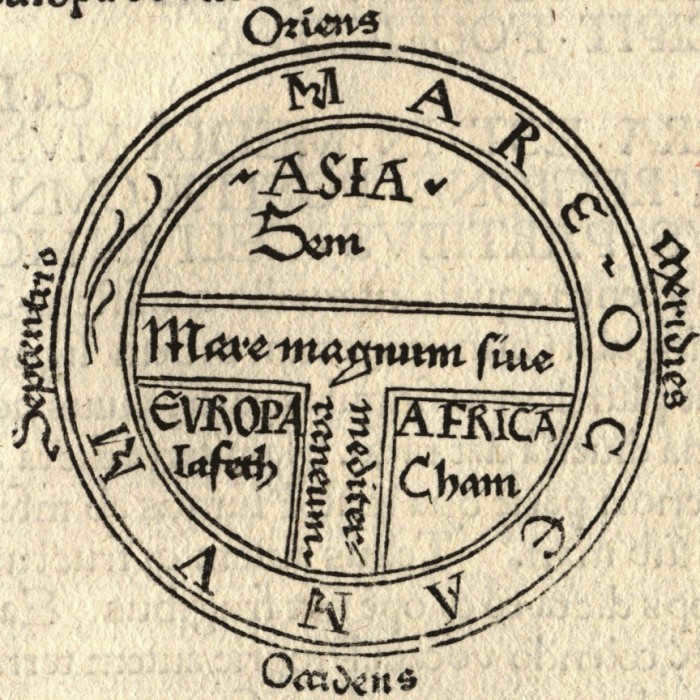 Oriens
MARE OCCEANVM
ASIA
Sem
Meridies
Septentrio
Mare magnum siue
mediter=
raneum.
EVROPA
Iafeth
AFRICA
Cham
Occidens